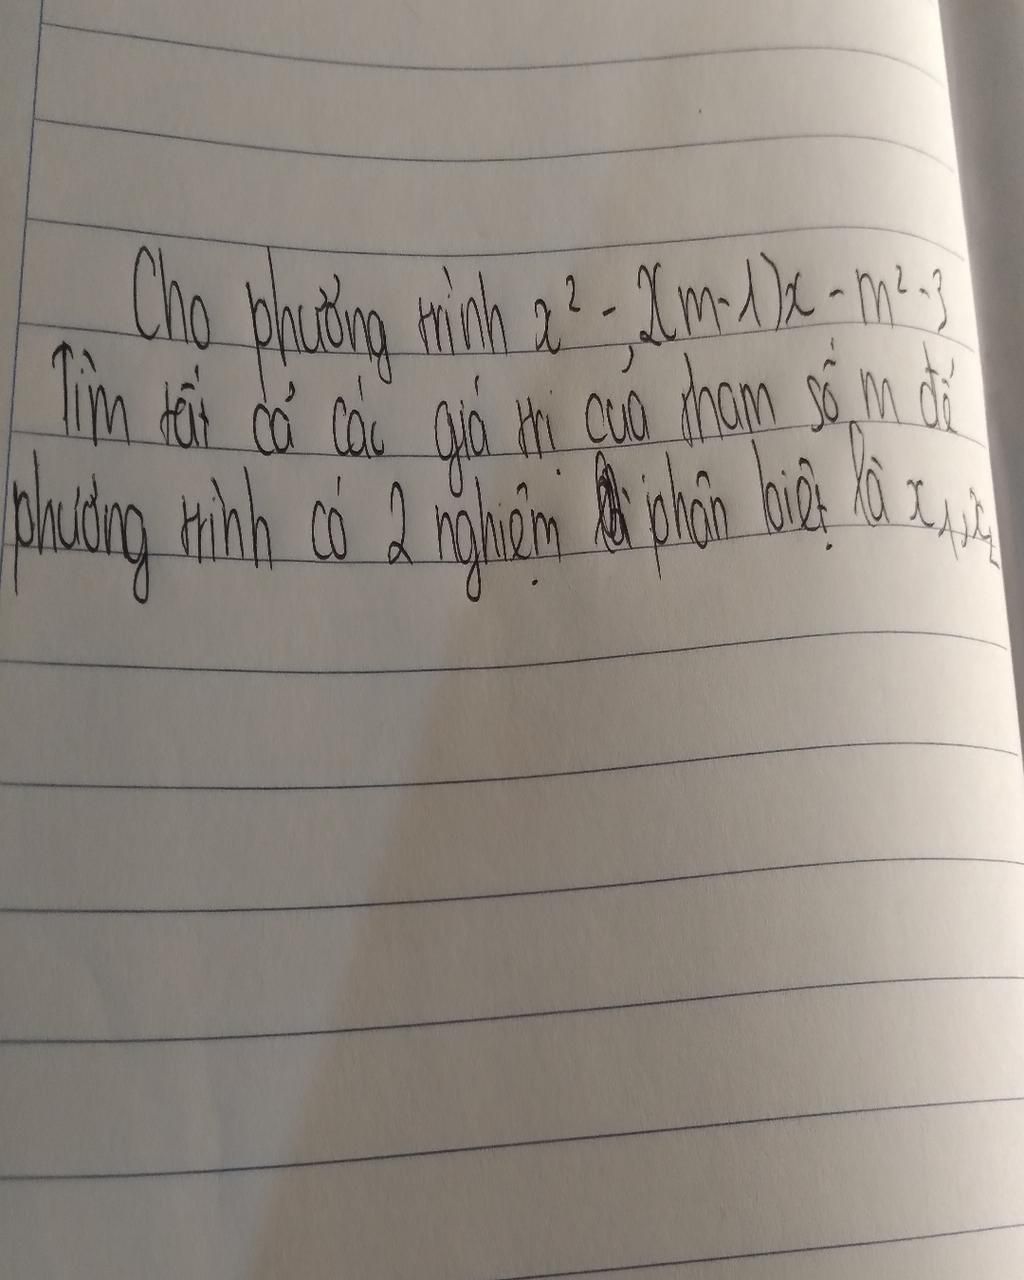 Cho phương trình x² - 2(m-1)x - m² - 3
Tìm tất cả các giá trị của tham số m để
phương trình có 2 nghiệm phân biệt là x₁, x₂